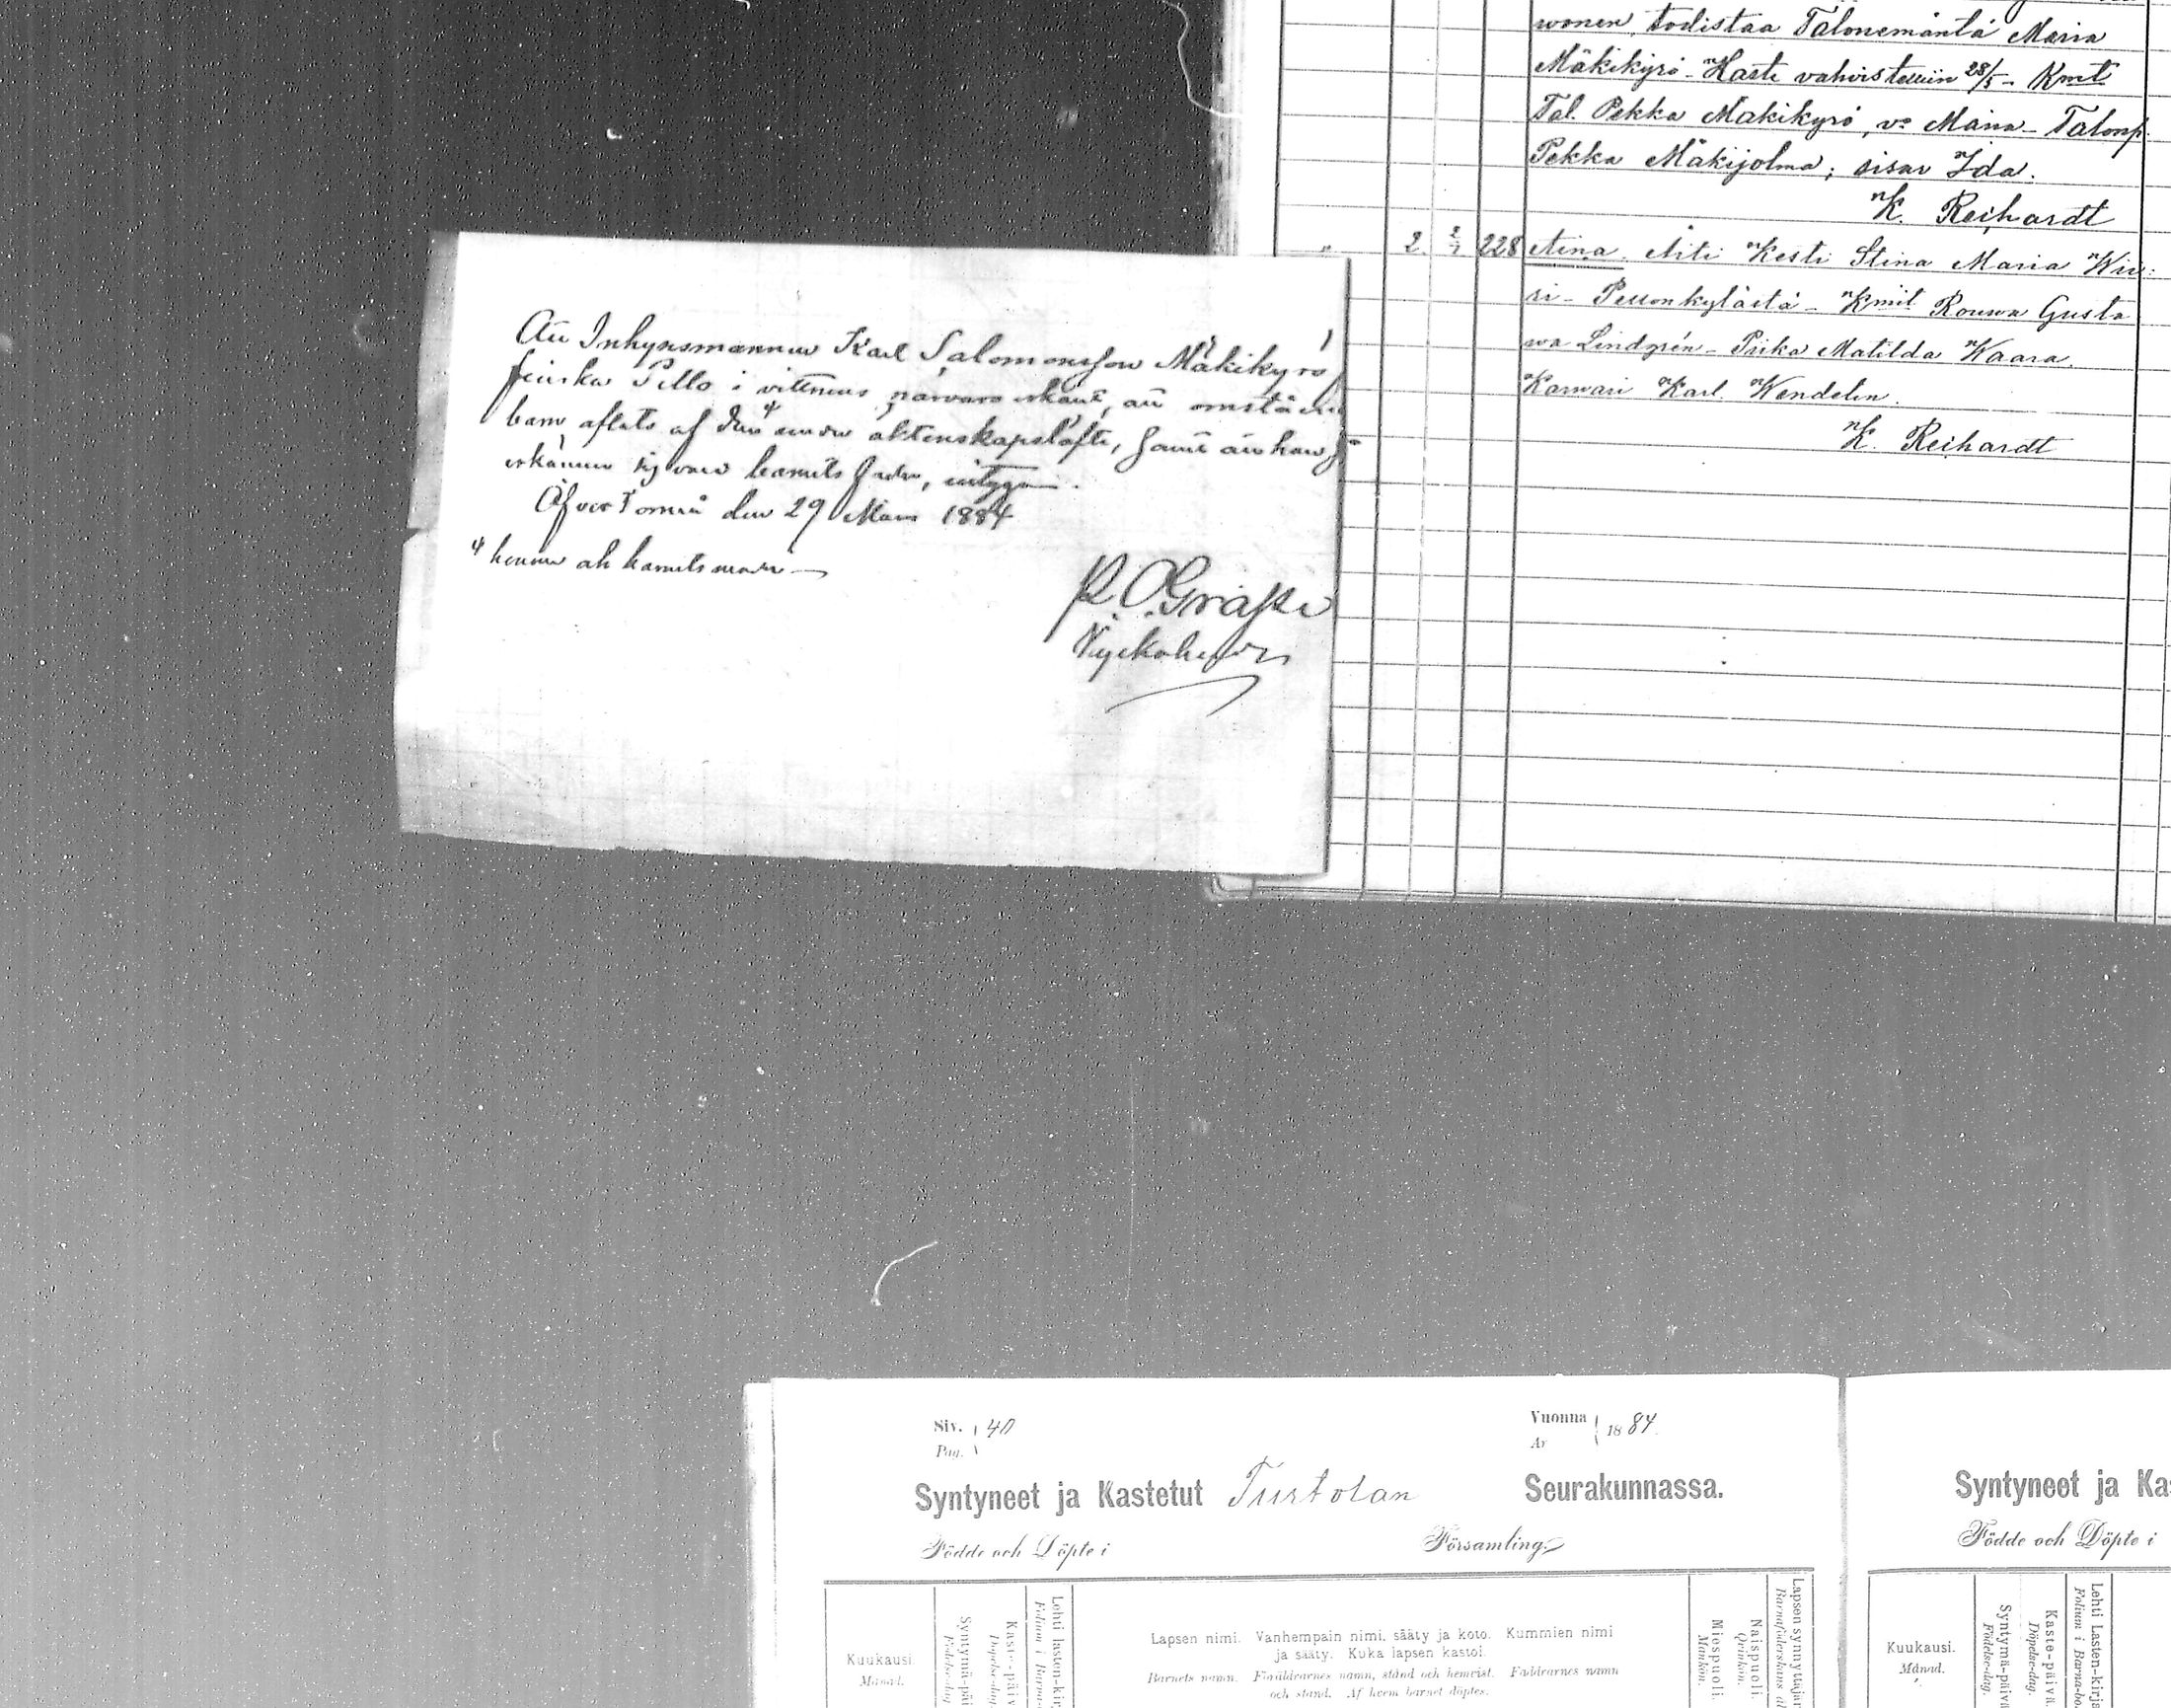 Att Inhysesmannen Karl Salomonsson Mäkikyrö
finska Pello i vittnens närvaro erkänt, att omstående
barn aflats af den under äktenskapslöfte, samt att han
erkänner sig vara barnets fader, intygar.
Öfver Torneå den 29 Mars 1884
# henne ell barnets moder
P. O. Grape
Kyrkoherde
wonen, todistaa Talonemäntä Maria
Mäkikyrö - Haste vahvistettiin 28/5 - Kmt
Tal. Pekka Mäkikyrö, vo Maria - Talonp.
Pekka Mäkijolma; sisar Ida.
K. Reihardt
" 2. 2/7 228 Aina. Äiti Kesti Stina Maria Wii-
ri - Pellonkylästä - Kmit Rouwa Gusta
wa Lindgrén - Piika Matilda Waara.
Karwari Karl Wendelin.
K. Reihardt
Siv. 40
Pag.
Vuonna 1884.
År
Syntyneet ja Kastetut Turtolan Seurakunnassa.
Födde och Döpte i Församling.
Kuukausi.
Månad.
Syntymä-päi
Födelse-dag
Kaste-päiv
Döpelse-dag
Lehti lasten-kir
Folium i Barna-
Lapsen nimi. Vanhempain nimi, sääty ja koto. Kummien nimi
ja sääty. Kuka lapsen kastoi.
Barnets namn. Föräldrarnes namn, stånd och hemvist. Faddrarnes namn
och stånd. Af hvem barnet döptes.
Miespuoli.
Mankön.
Naispuoli.
Qvinkön.
Lapsen synnyttäjän
Barnaföderskans ål
Syntyneet ja Ka
Födde och Döpte i
Kuukausi.
Månad.
Syntymä-päivä
Födelse-dag.
Kaste-päivä.
Döpelse-dag.
Lehti Lasten-kirja
Folium i Barna-bo